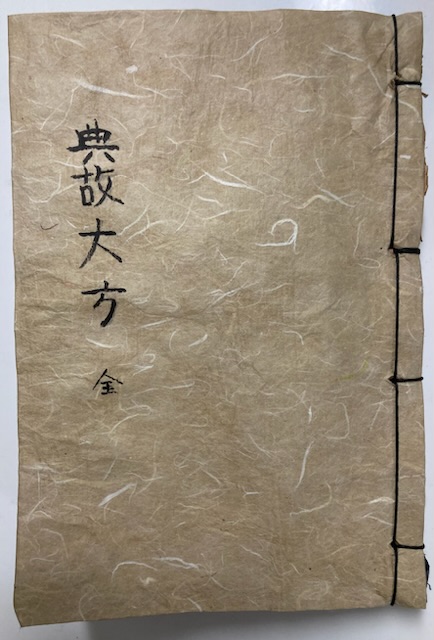 典故大方
全